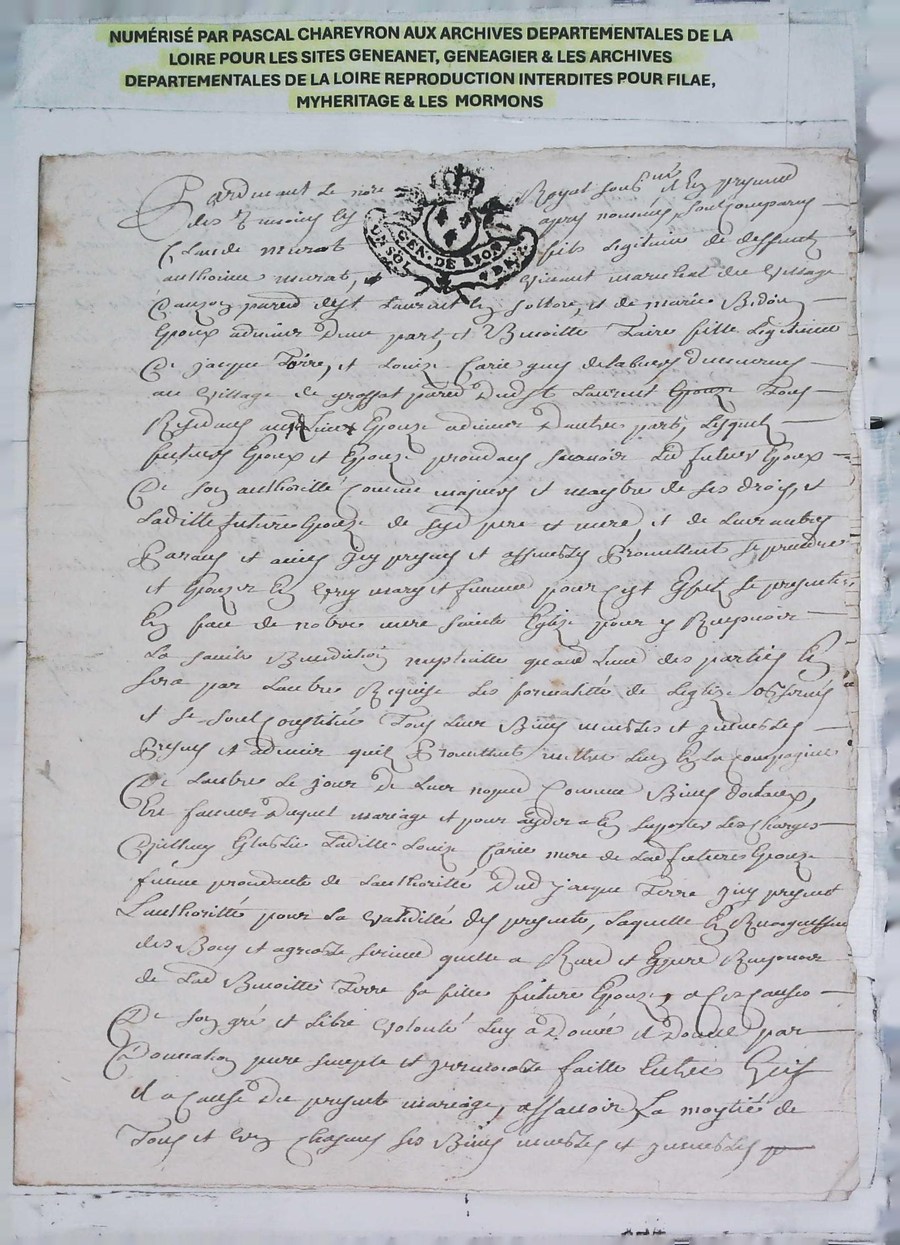 NUMÉRISÉ PAR PASCAL CHAREYRON AUX ARCHIVES DEPARTEMENTALES DE LA
LOIRE POUR LES SITES GENEANET, GENEAGIER & LES ARCHIVES
DEPARTEMENTALES DE LA LOIRE REPRODUCTION INTERDITES POUR FILAE,
MYHERITAGE & LES MORMONS
Pardevant le nore Royal soub.né & en presence
des tmoins bs apres nommés, sont comparus
GEN. DE LION
UN SOL
Claude murat fils legitime de deffunct
anthoinne murat, vivant marechal du village
parr. dest Laurent en Solore, et de marie
Epoux advenir d'une part, et Benoitte Terre fille legitime
De jacque Terre, et Louize Carie
au village de grossat parr. Dudst Laurent Tous
Residans Epouze advenir d'autre part, Lesquels
futurs Epoux et Epouze procedans scavoir Led futur Epoux
De son authorité Comme majeur et maystre de ses drois, et
Laditte future Epouze de sesd pere et mere, et de Leur autres
Parans et amies Icy presens et assembles Promettent se prendre
et Epouzer En vray mary et femme pour cest Effet se presenter
En face de notre mere sainte Eglize pour y Recepvoir
La sainte Benediction nuptialle quand L'une des parties En
sera par Lautre Requise Les formalitté de Leglize observés
et se sont Constitués Tous Leur Biens meubles et Immeubles
Presens et advenir quils Promettent mettre En La Compagnie
De Lautre Le jour de Leur nopces Comme Biens dotaux,
En faveur Duquel mariage et pour ayder a En suporter Les Charges
Establie Laditte Louize Carie mere de Lad future Epouze
femme procedante de Lauthoritté Dud jacque Terre Icy present
Lauthoritté pour La validitté des presente, Laquelle En Recognoissance
des Bons et agreable service quelle a Receu et Espere Recepvoir
de Lad Benoitte Terre sa fille future Epouze, a Ces Causes
De son gré et Libre volonté Luy a Donné et Donne par
Donnation pure simple et irrevocable faitte Entre vifs
et a Cause Du present mariage, assavoir La moytié de
Tous et un Chascuns ses Biens meubles et Immeubles